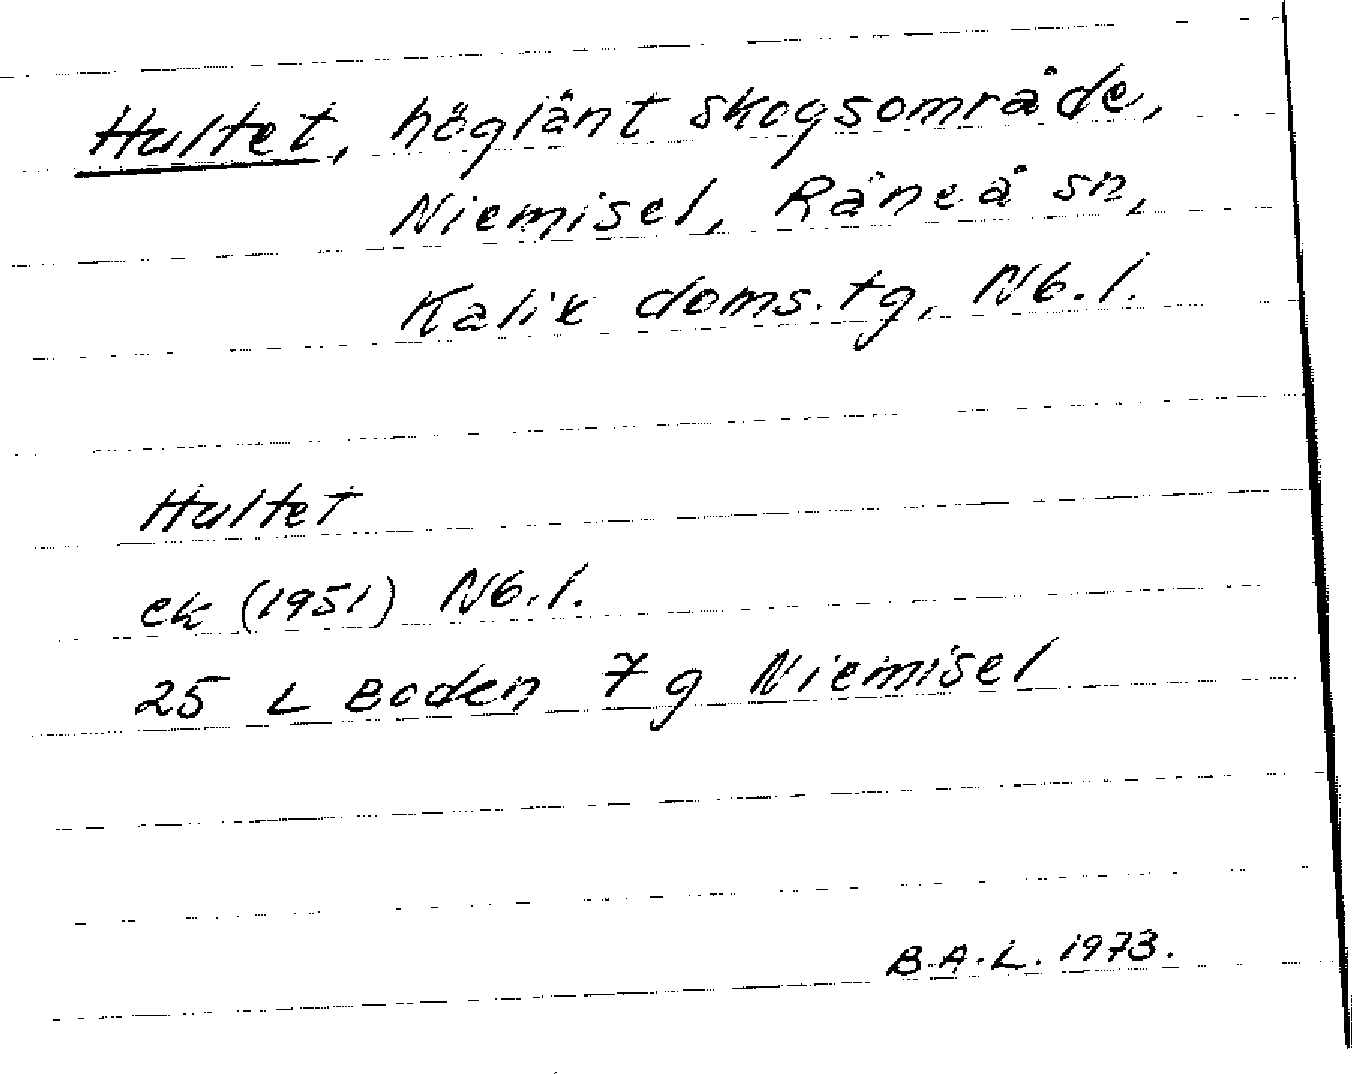 Hultet, höglänt skogsområde,
Niemisel, Råneå sn,
Kalix doms. tg, Nb. l.
Hultet
ek (1951) Nb. l.
25 L Boden 7 g Niemisel
B.A.L. 1973.